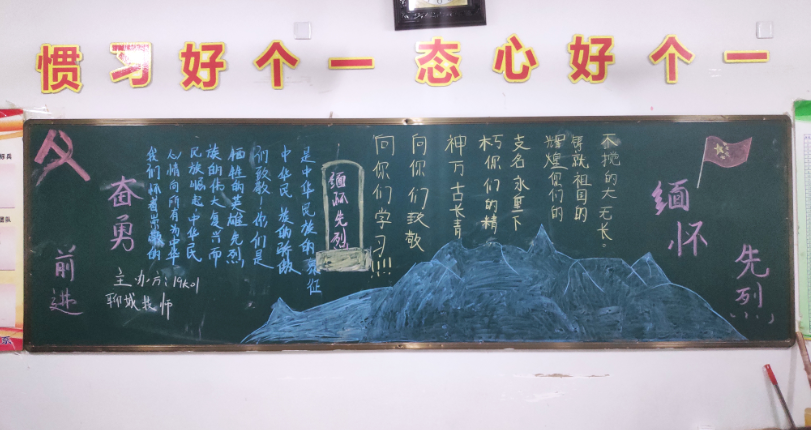 一个好心态一个好习惯
缅怀
先烈!!!
奋勇
前进
主办方:19大01
聊城技师
我们怀着崇敬的
心情向所有为中华
民族崛起中华民
族的伟大复兴而
牺牲的英雄先烈,
们致敬!你们是
中华民族的骄傲
是中华民族的象征
缅怀先烈
不挠的大无
铸就祖国的
辉煌你们的
名永垂不
朽你们的精
神万古长青
向你们致敬
向你们学习!!!